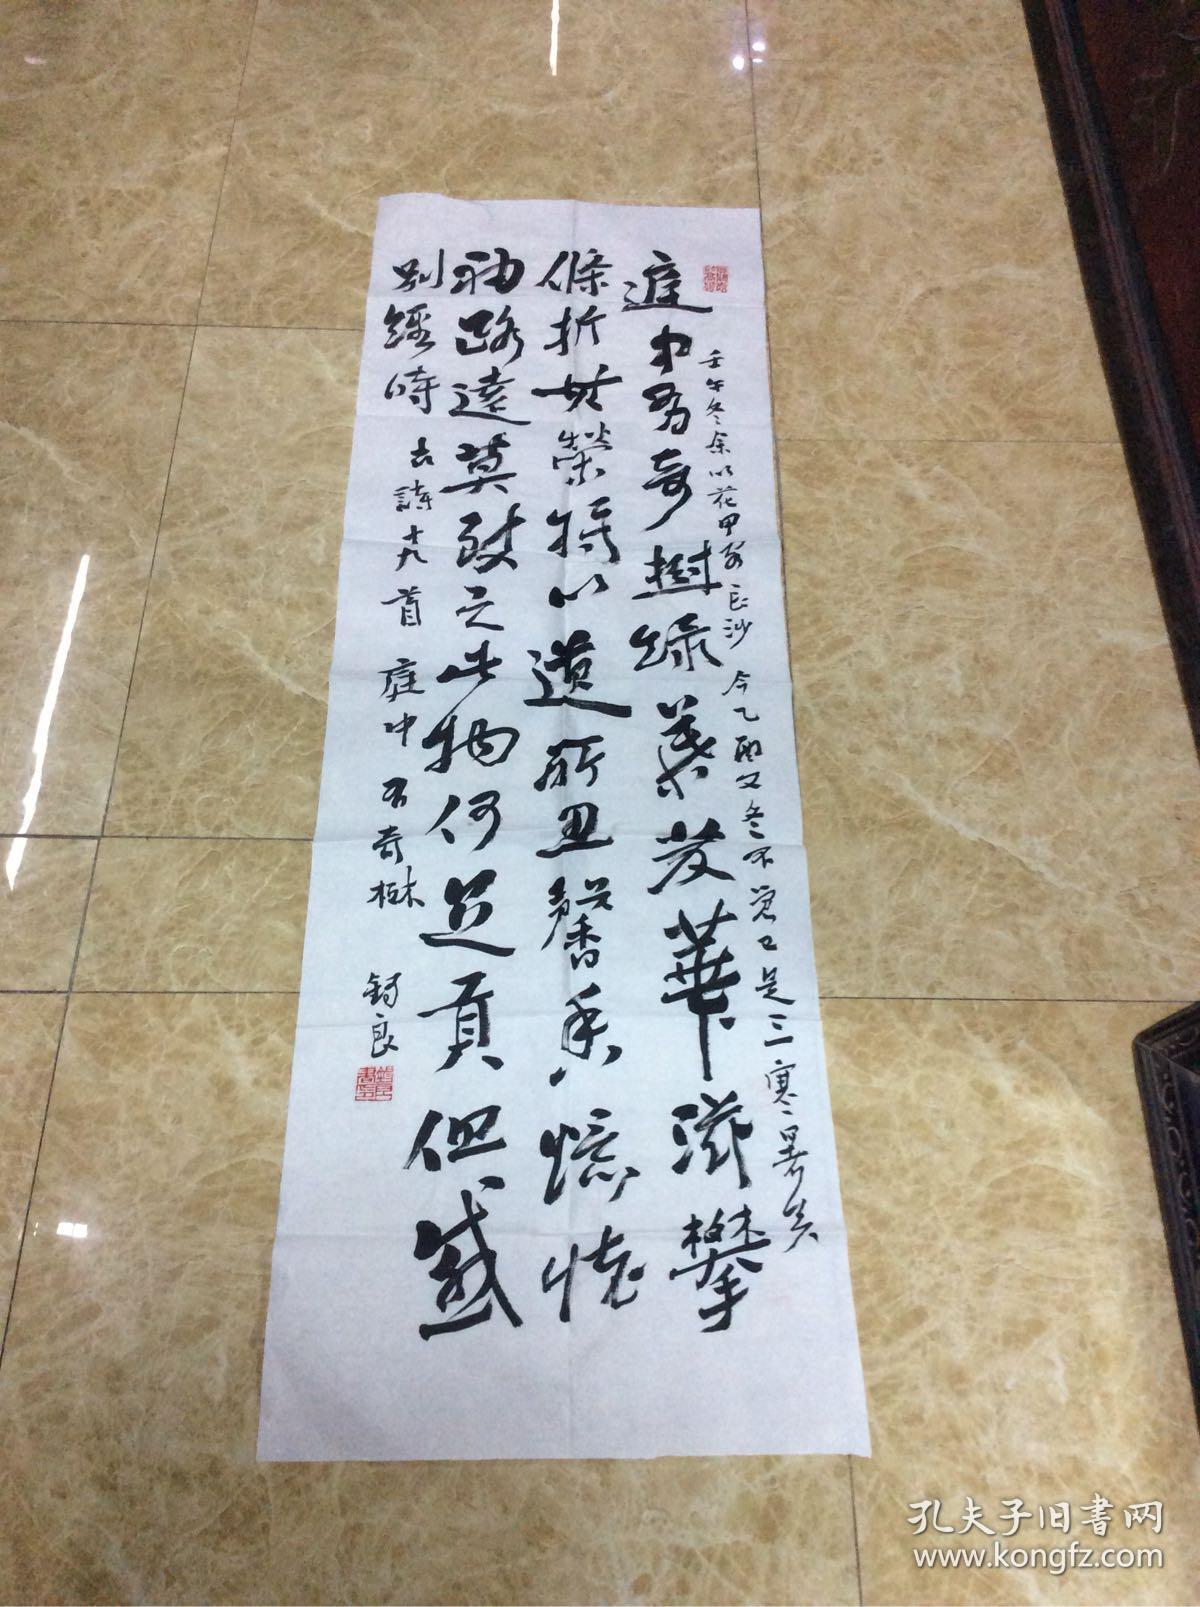 壬午冬余以花甲客長沙 今乙酉又冬不觉已是三寒暑矣
庭中有奇樹綠葉发華滋攀
條折其榮將以遺所思馨香懷
袖路遠莫致之此物何足貢但感
別經時 古詩十九首 庭中有奇樹
錫良
孔夫子旧書网
www.kongfz.com